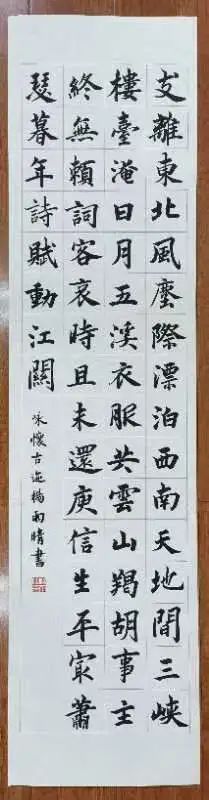 支離東北風塵際漂泊西南天地間三峽
樓臺淹日月五溪衣服共雲山羯胡事主
終無賴詞客哀時且未還庾信生平㝡蕭
瑟暮年詩賦動江關
咏懷古迹楊雨晴書